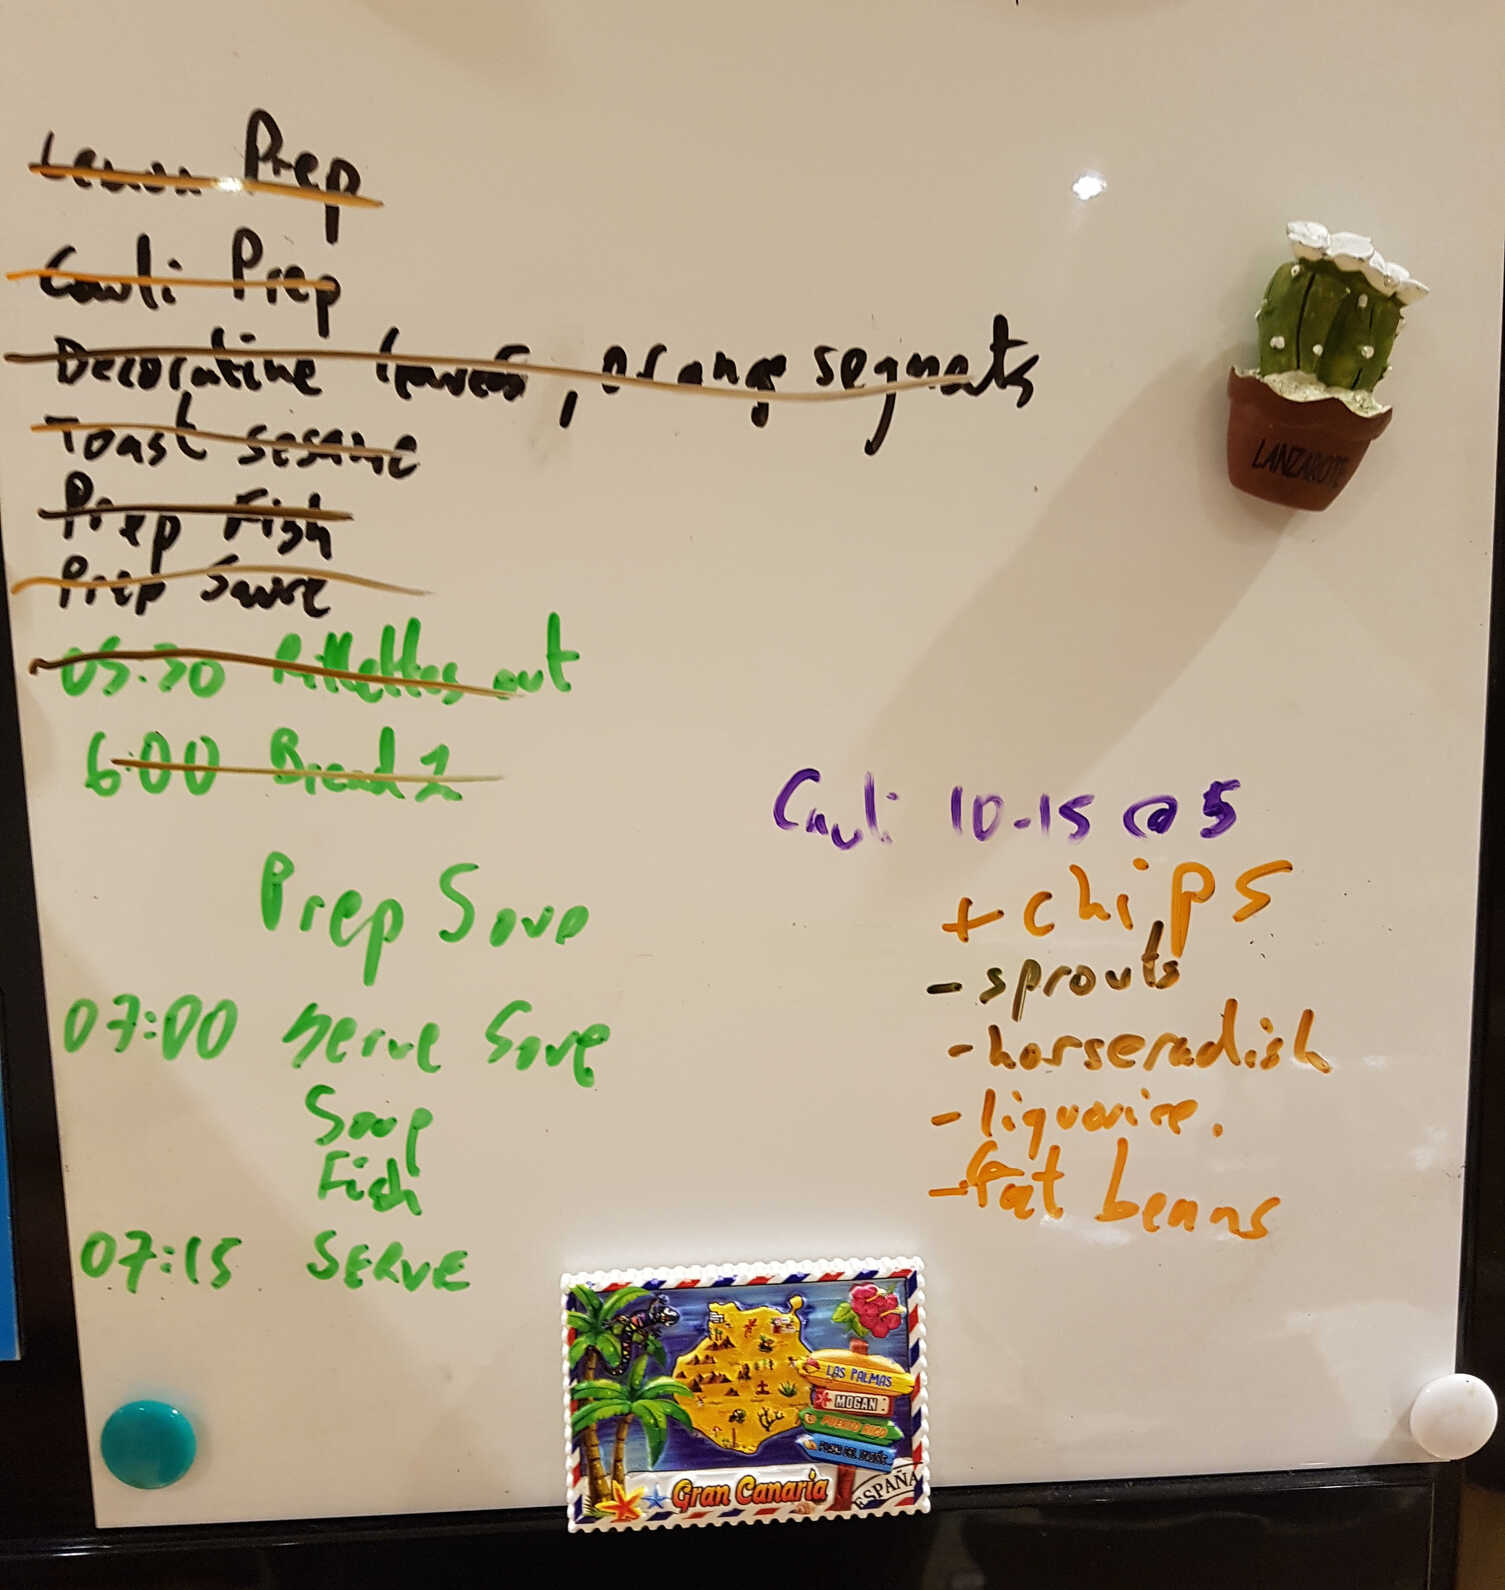 Lemon Prep
Cauli Prep
Decorative leaves, orange segmats
Toast sesame
Prep Fish
Prep Sauce
05:30 Rillettes out
6:00 Bread 2
Prep Soup
07:00 Serve
Soup
Fish
07:15 SERVE
Cauli 10-15 @ 5
+ chips
- sprouts
- horseradish
- liquorice.
- fat beans
LANZAROTE
LAS PALMAS
MOGAN
PUERTO RICO
Gran Canaria
ESPAÑA